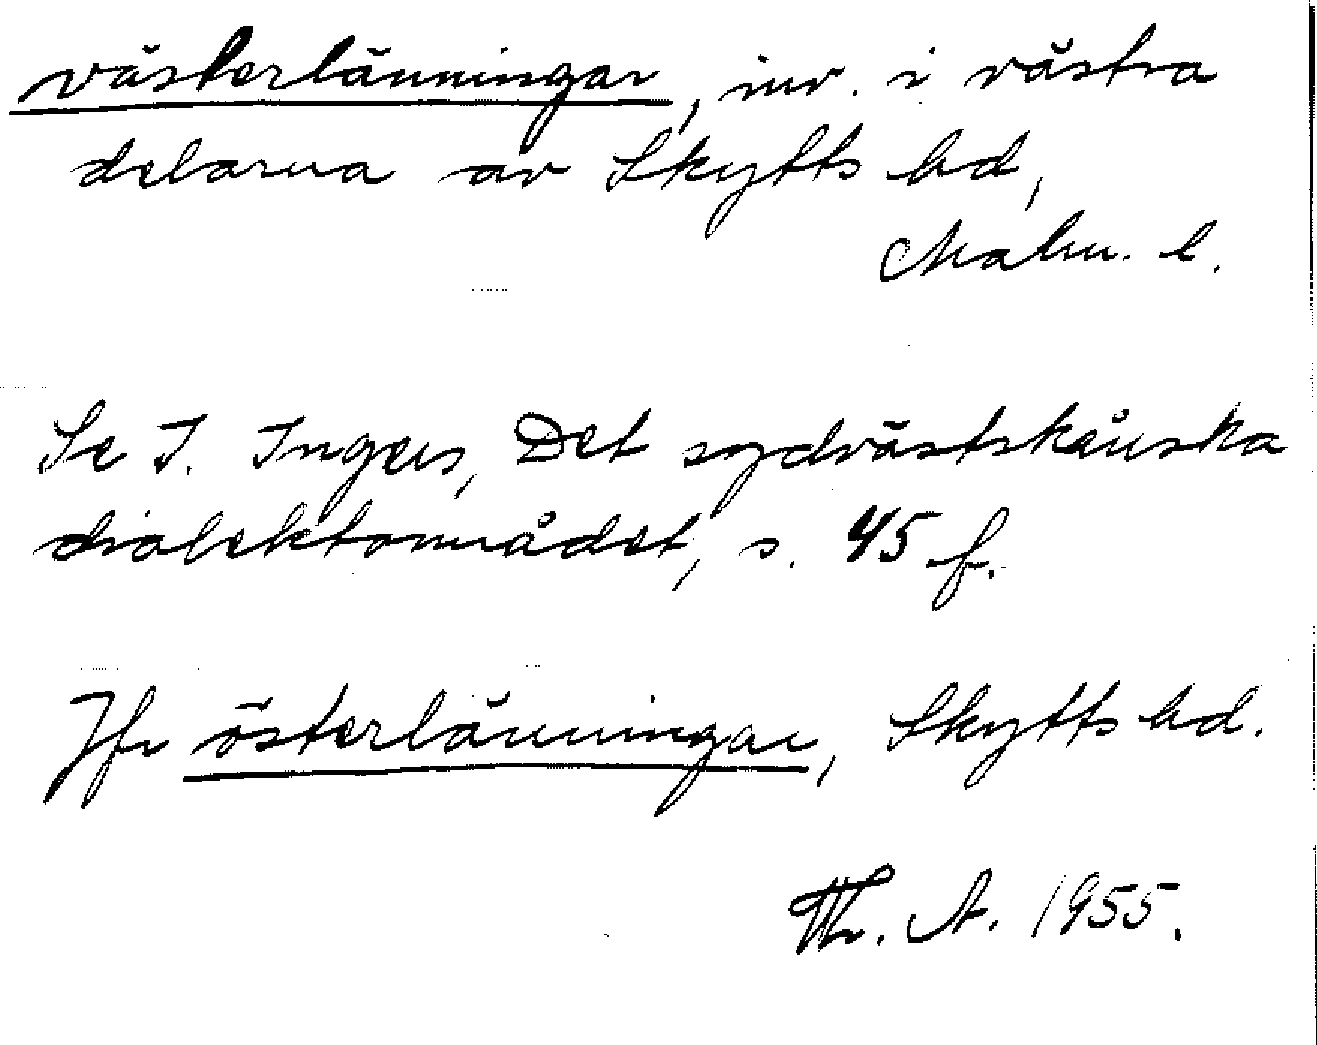 västerlänningar, inv. i västra
delarna av Skytts hd,
Malm. l.
Se I. Ingers, Det sydvästskånska
dialektområdet, s. 45 f.
Jfr österlänningar, Skytts hd.
Th. A. 1955.